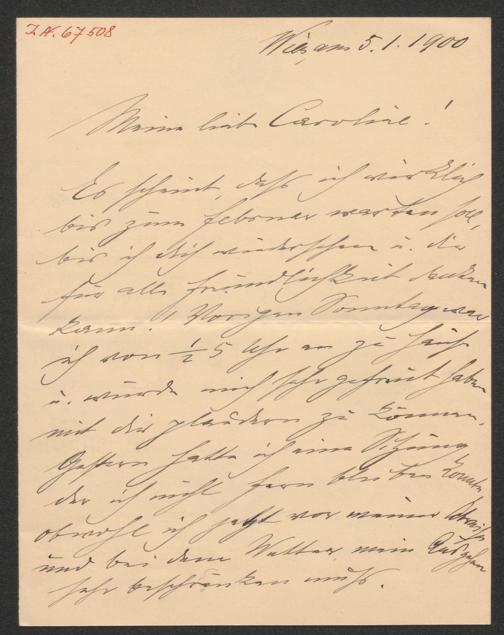 I.N. 67508
Wien, am 5.1.1900
Meine liebe Caroline!
Es scheint, daß ich wirklich
bis zum Februar warten soll,
bis ich dich wiedersehen u. dir
für alle Freundlichkeit danken
kann. Vorigen Sonntag war
ich von ½ 5 Uhr an zu Haus
u. würde mich sehr gefreut haben
mit dir plaudern zu können.
Gestern hatte ich eine Sitzung
der ich nicht fern bleiben konnte,
obwohl ich jetzt vor meiner
und bei dem Wetter mein Ausgehen
sehr beschränken muß.